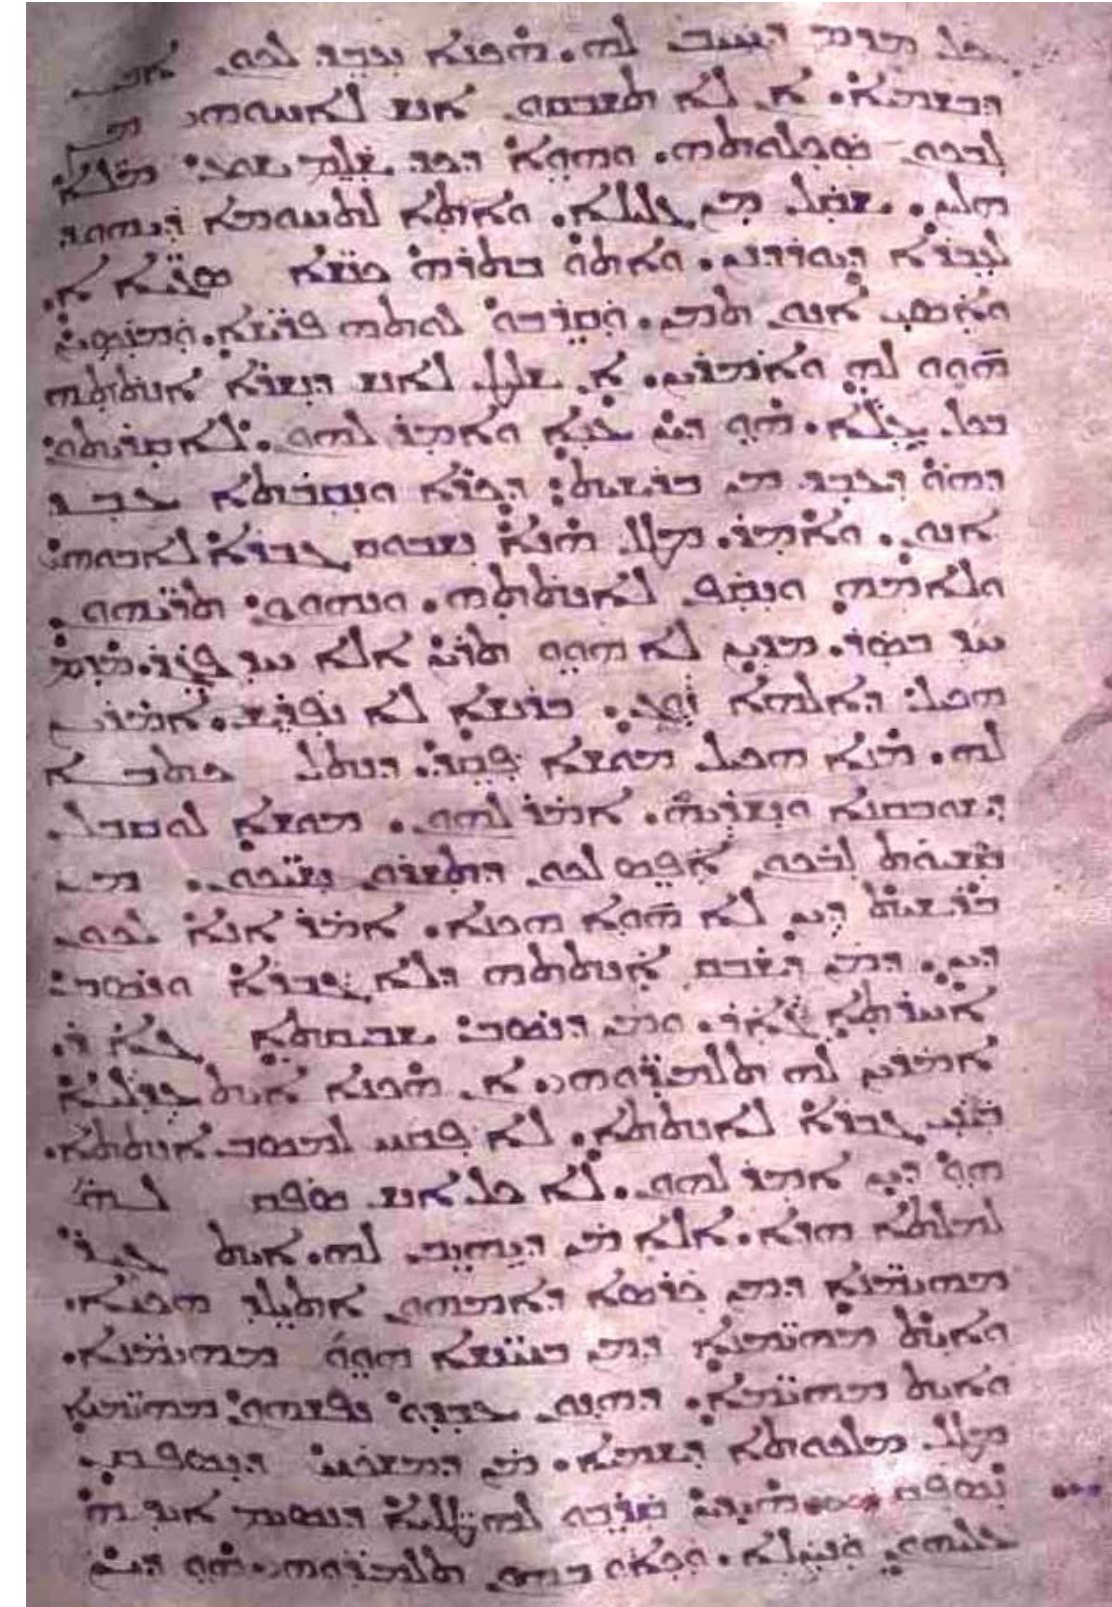 ܟܠ ܡܕܡ ܕܚܝܒ ܠܗ. ܗܟܢܐ ܢܥܒܕ ܠܟܘܢ ܐܒܝ
ܕܒܫܡܝܐ. ܐܢ ܠܐ ܬܫܒܩܘܢ ܐܢܫ ܠܐܚܘܗܝ ܡܢ
ܠܒܟܘܢ ܣܟܠܘܬܗ. ܘܗܘܐ ܕܟܕ ܫܠܡ ܝܫܘܥ ܡܠܐ
ܗܠܝܢ. ܫܩܠ ܡܢ ܓܠܝܠܐ. ܘܐܬܐ ܠܬܚܘܡܐ ܕܝܗܘܕ
ܠܥܒܪܐ ܕܝܘܪܕܢܢ. ܘܐܬܘ ܒܬܪܗ ܟܢܫܐ ܣܓܝܐܐ
ܘܐܣܝ ܐܢܘܢ ܬܡܢ. ܘܩܪܒܘ ܠܘܬܗ ܦܪܝܫܐ. ܘܡܢܣܝܢ
ܗܘܘ ܠܗ ܘܐܡܪܝܢ. ܐܢ ܫܠܝܛ ܠܐܢܫ ܕܢܫܪܐ ܐܢܬܬܗ
ܒܟܠ ܥܠܐ. ܗܘ ܕܝܢ ܥܢܐ ܘܐܡܪ ܠܗܘܢ. ܠܐ ܩܪܝܬܘܢ
ܕܗܘ ܕܥܒܕ ܡܢ ܒܪܫܝܬ: ܕܟܪܐ ܘܢܩܒܬܐ ܥܒܕ
ܐܢܘܢ. ܘܐܡܪ. ܡܛܠ ܗܢܐ ܢܫܒܘܩ ܓܒܪܐ ܠܐܒܘܗܝ
ܘܠܐܡܗ ܘܢܩܦ ܠܐܢܬܬܗ. ܘܢܗܘܘܢ ܬܪܝܗܘܢ
ܚܕ ܒܣܪ. ܡܕܝܢ ܠܐ ܗܘܘ ܬܪܝܢ ܐܠܐ ܚܕ ܦܓܪ. ܡܕܡ
ܗܟܝܠ ܕܐܠܗܐ ܙܘܓ. ܒܪܢܫܐ ܠܐ ܢܦܪܫ. ܐܡܪܝܢ
ܠܗ. ܡܢܐ ܗܟܝܠ ܡܘܫܐ ܦܩܕ. ܕܢܬܠ ܟܬܒܐ
ܕܫܘܒܩܢܐ ܘܢܫܪܝܗ. ܐܡܪ ܠܗܘܢ. ܡܘܫܐ ܠܘܩܒܠ
ܩܫܝܘܬ ܠܒܟܘܢ ܐܦܣ ܠܟܘܢ ܕܬܫܪܘܢ ܢܫܝܟܘܢ. ܡܢ
ܒܪܫܝܬ ܕܝܢ ܠܐ ܗܘܐ ܗܟܢܐ. ܐܡܪ ܐܢܐ ܠܟܘܢ
ܕܝܢ. ܕܡܢ ܕܫܒܩ ܐܢܬܬܗ ܕܠܐ ܓܘܪܐ ܘܢܣܒ
ܐܚܪܬܐ ܓܐܪ. ܘܡܢ ܕܢܣܒ ܫܒܝܩܬܐ ܓܐܪ.
ܐܡܪܝܢ ܠܗ ܬܠܡܝܕܘܗܝ. ܐܢ ܗܟܢܐ ܐܝܬ ܥܕܠܝܐ
ܒܝܬ ܓܒܪܐ ܠܐܢܬܬܐ. ܠܐ ܦܩܚ ܠܡܣܒ ܐܢܬܬܐ.
ܗܘ ܕܝܢ ܐܡܪ ܠܗܘܢ. ܠܐ ܟܠ ܐܢܫ ܣܦܩ ܠܗ
ܠܡܠܬܐ ܗܕܐ. ܐܠܐ ܡܢ ܕܝܗܝܒ ܠܗ. ܐܝܬ ܓܝܪ
ܡܗܝܡܢܐ ܕܡܢ ܟܪܣܐ ܕܐܡܗܘܢ ܐܬܝܠܕܘ ܗܟܢܐ.
ܘܐܝܬ ܡܗܝܡܢܐ ܕܡܢ ܒܢܝܢܫܐ ܗܘܘ ܡܗܝܡܢܐ.
ܘܐܝܬ ܡܗܝܡܢܐ. ܕܗܢܘܢ ܥܒܕܘ ܢܦܫܗܘܢ ܡܗܝܡܢܐ
ܡܛܠ ܡܠܟܘܬܐ ܕܫܡܝܐ. ܡܢ ܕܡܫܟܚ ܕܢܣܦܩ
ܢܣܦܩ ܗܝܕܝܢ ܩܪܒܘ ܠܗ ܛܠܝܐ ܕܢܣܝܡ ܐܝܕܗ
ܥܠܝܗܘܢ ܘܢܨܠܐ. ܘܟܐܘ ܒܗܘܢ ܬܠܡܝܕܘܗܝ. ܗܘ ܕܝܢ